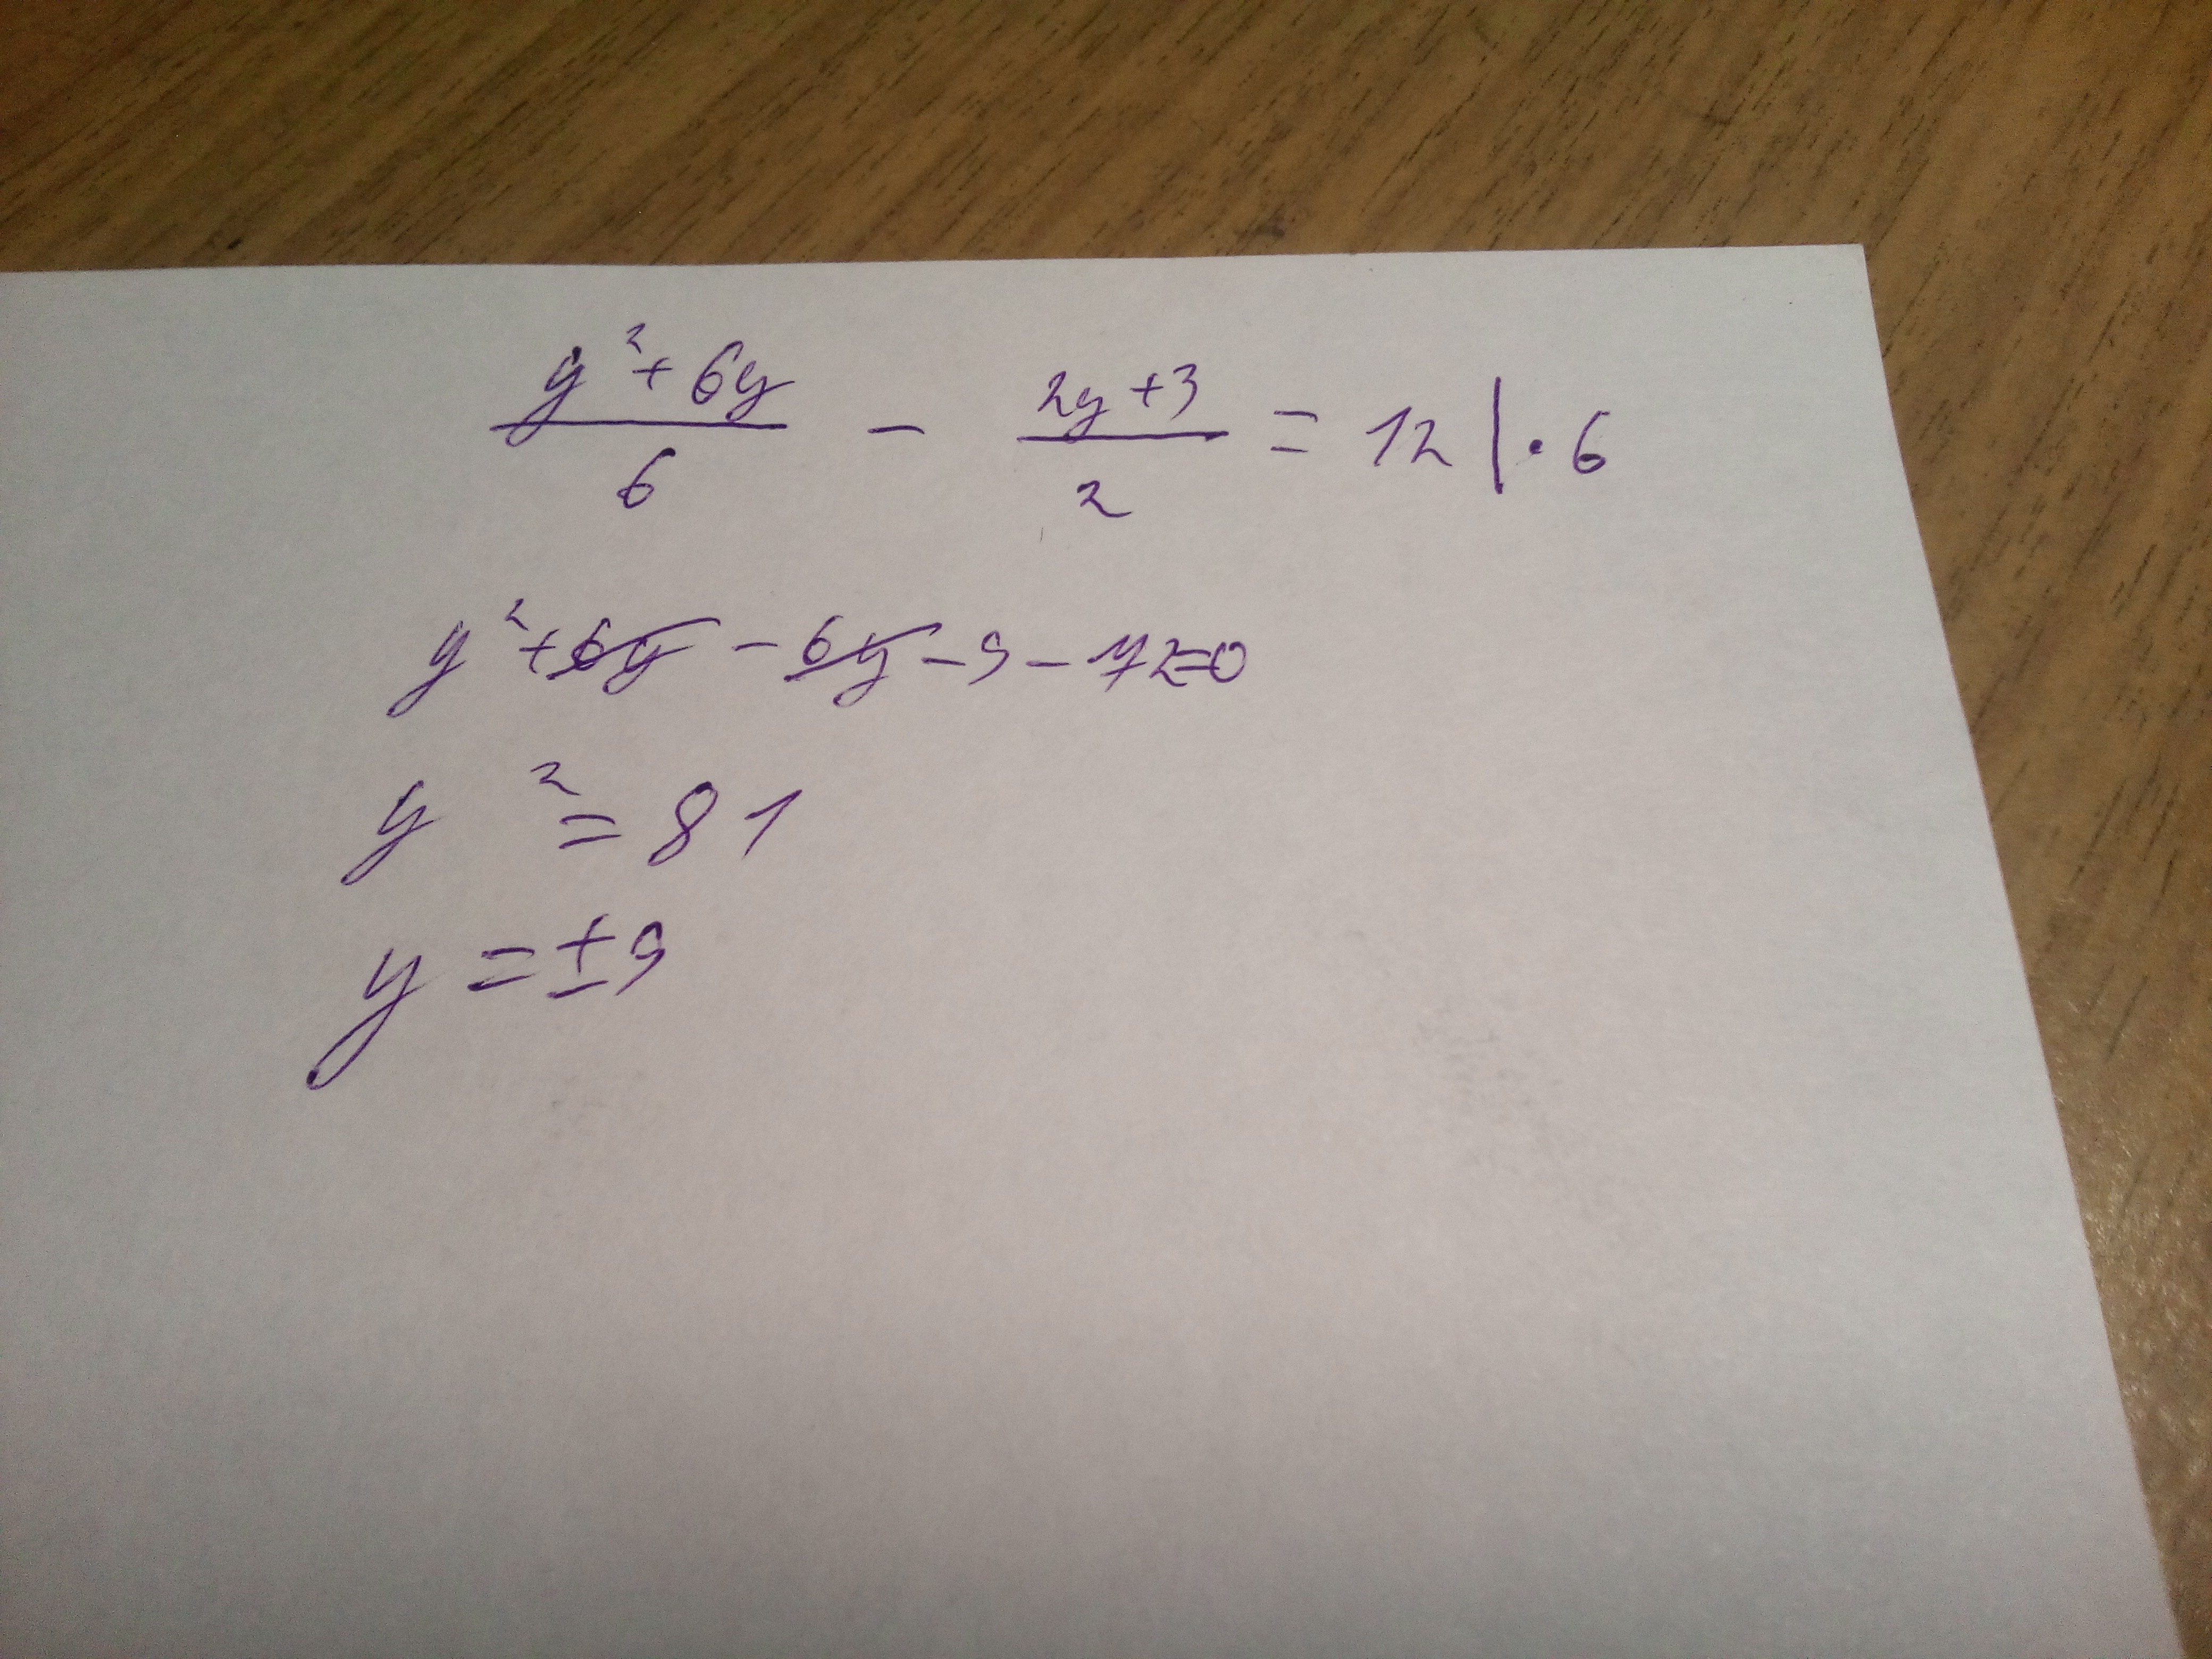 (y² + 6y)/6 - (2y + 3)/2 = 12 | · 6
y² + 6y - 6y - 9 - 72 = 0
y² = 81
y = ± 9